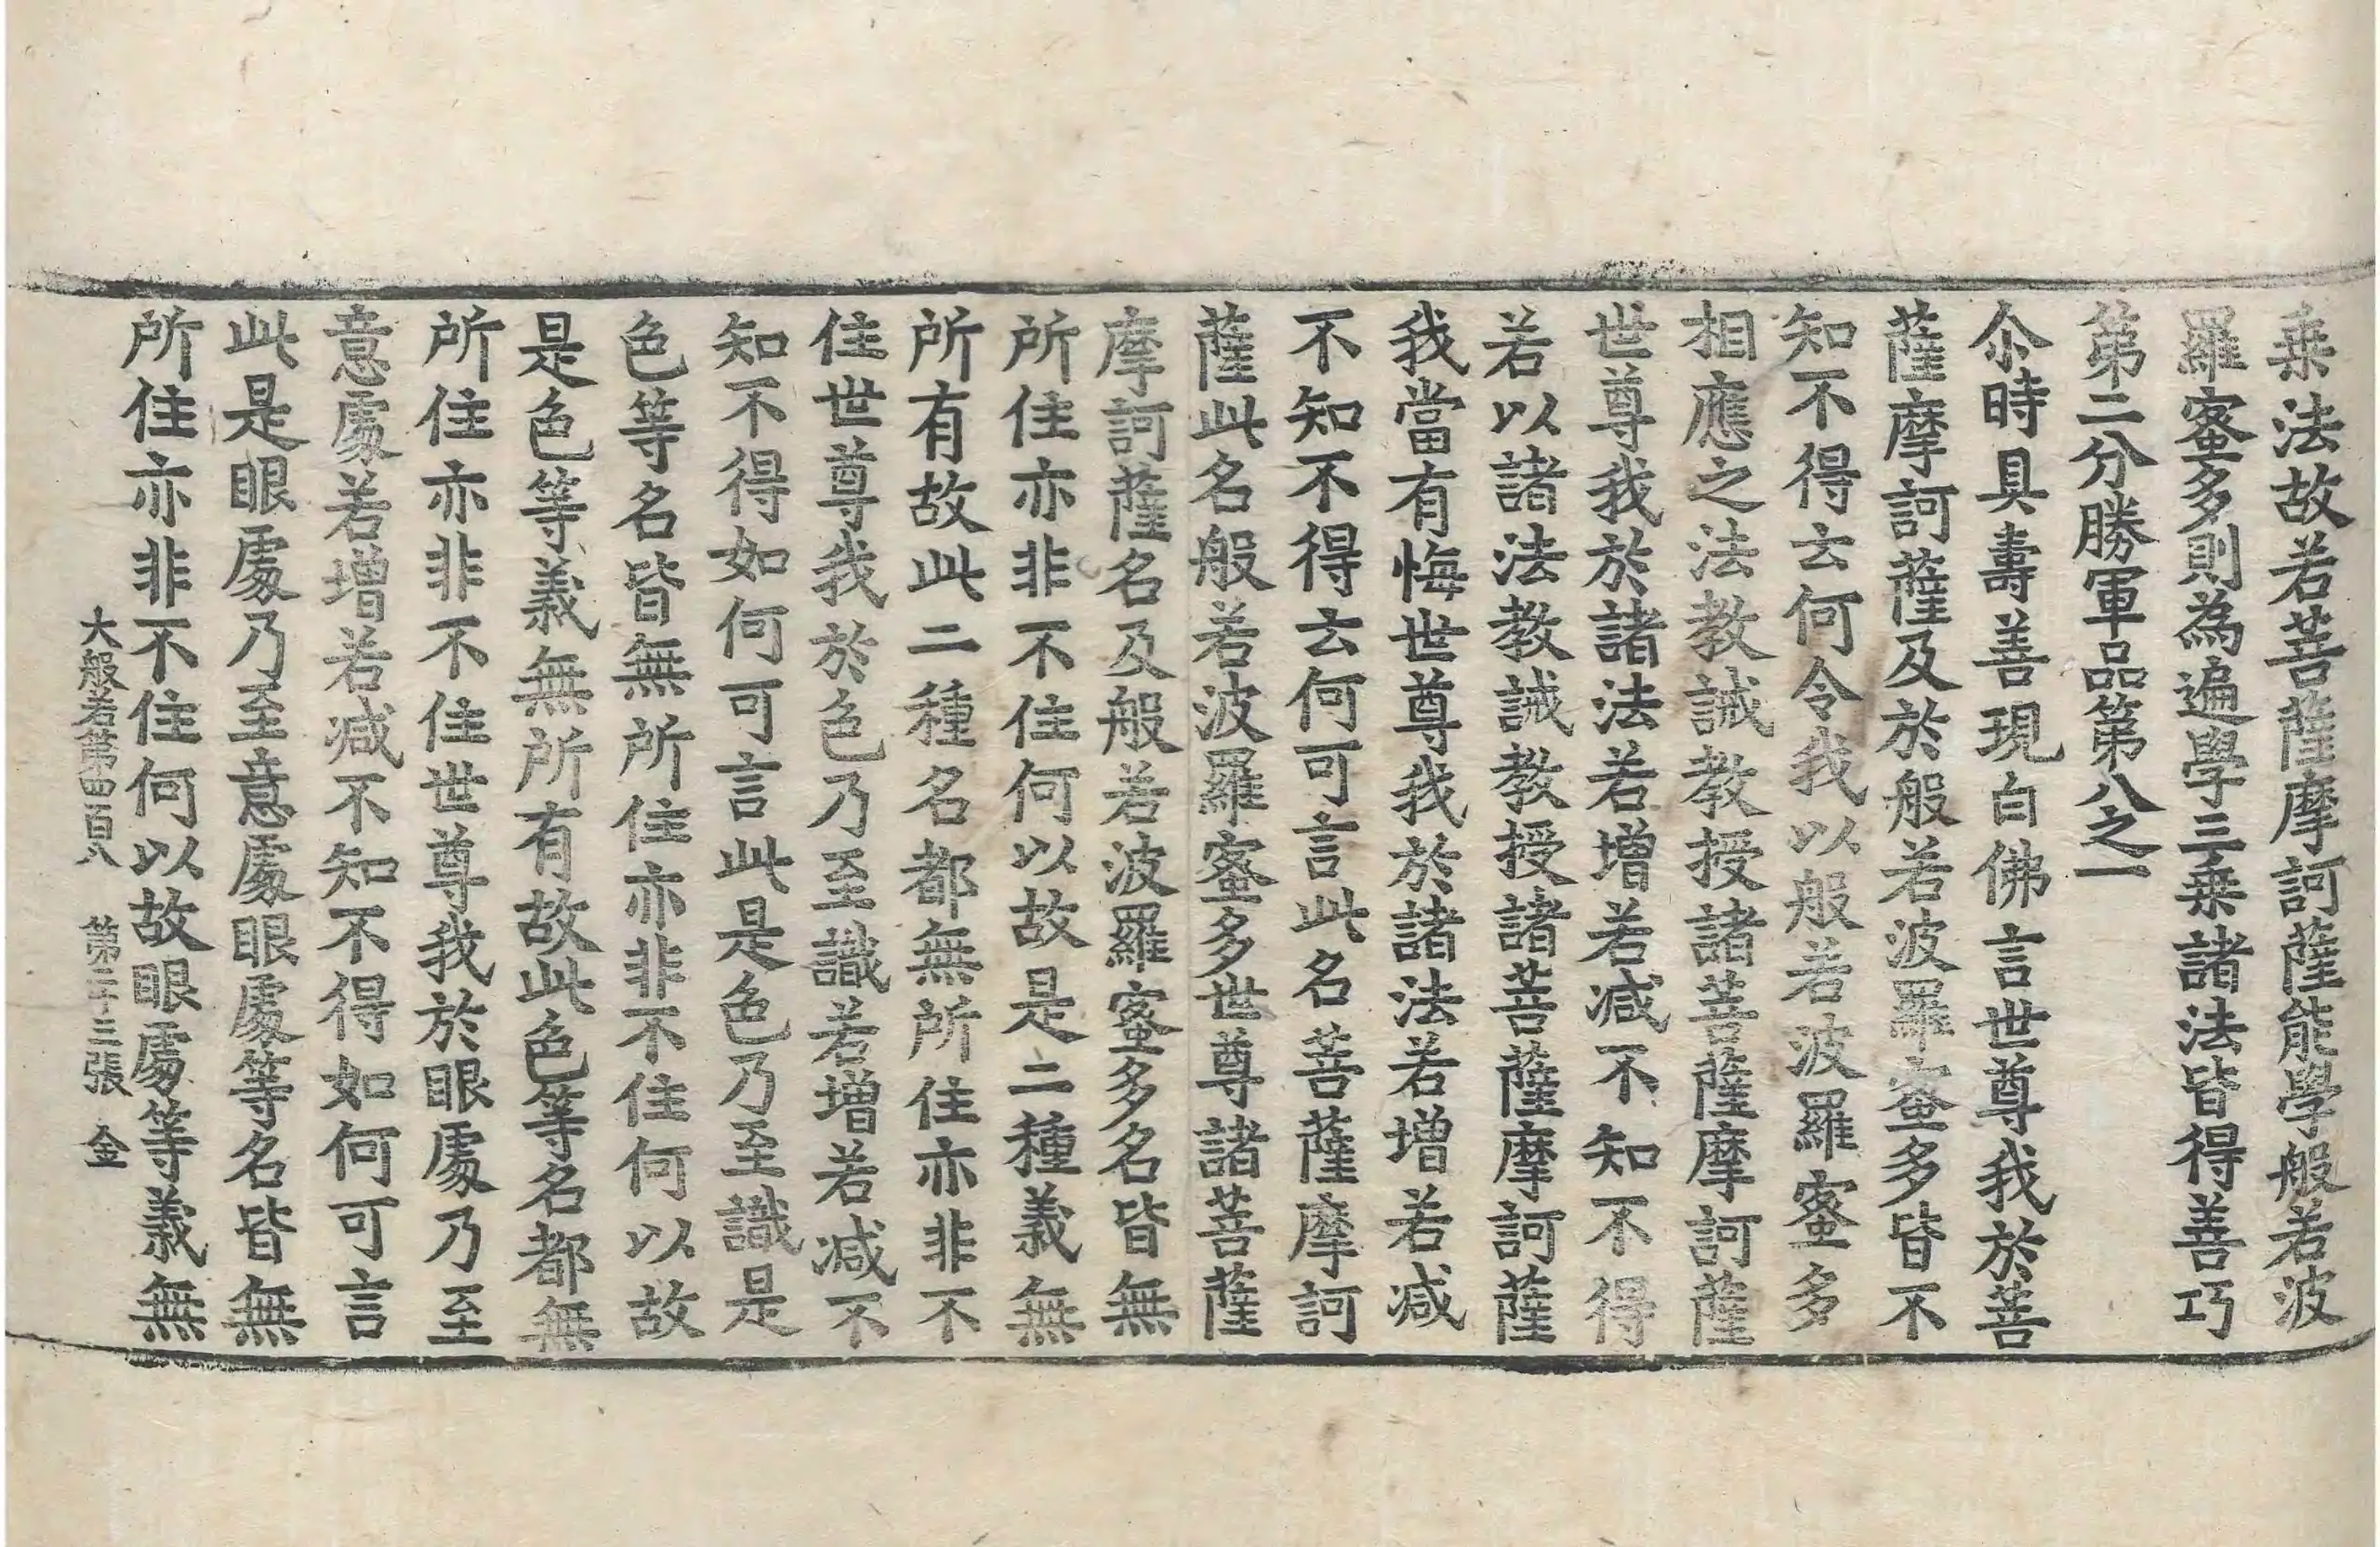 乗法故若菩薩摩訶薩能學般若波
羅蜜多則為遍學三乗諸法皆得善巧
第二分勝軍品第八之一
尒時具壽善現白佛言世尊我於菩
薩摩訶薩及於般若波羅蜜多皆不
知不得云何令我以般若波羅蜜多
相應之法教誡教授諸菩薩摩訶薩
世尊我於諸法若增若减不知不得
若以諸法教誡教授諸菩薩摩訶薩
我當有悔世尊我於諸法若增若减
不知不得云何可言此名菩薩摩訶
薩此名般若波羅蜜多世尊諸菩薩
摩訶薩名及般若波羅蜜多名皆無
所住亦非不住何以故是二種義無
所有故此二種名都無所住亦非不
住世尊我於色乃至識若增若减不
知不得如何可言此是色乃至識是
色等名皆無所住亦非不住何以故
是色等義無所有故此色等名都無
所住亦非不住世尊我於眼處乃至
意處若增若减不知不得如何可言
此是眼處乃至意處眼處等名皆無
所住亦非不住何以故眼處等義無
大般若第四百八 第二十三張 金